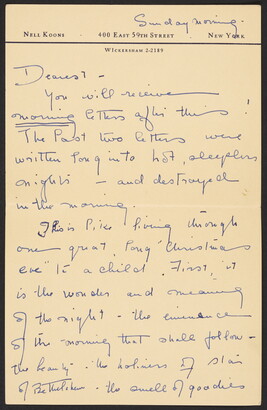 Sunday morning.
NELL KOONS · 400 EAST 59TH STREET · NEW YORK
WICKERSHAM 2-2189
Dearest -
You will receive
morning letters after this!
The last two letters were
written long into hot, sleepless
nights - and destroyed
in the morning.
This is like living through
one great, long "Christmas
eve" to a child. First, it
is the wonder and meaning
of the night - the eminence
of the morning that shall follow -
the beauty - the holiness of star
of Bethlehem - the smell of goodies